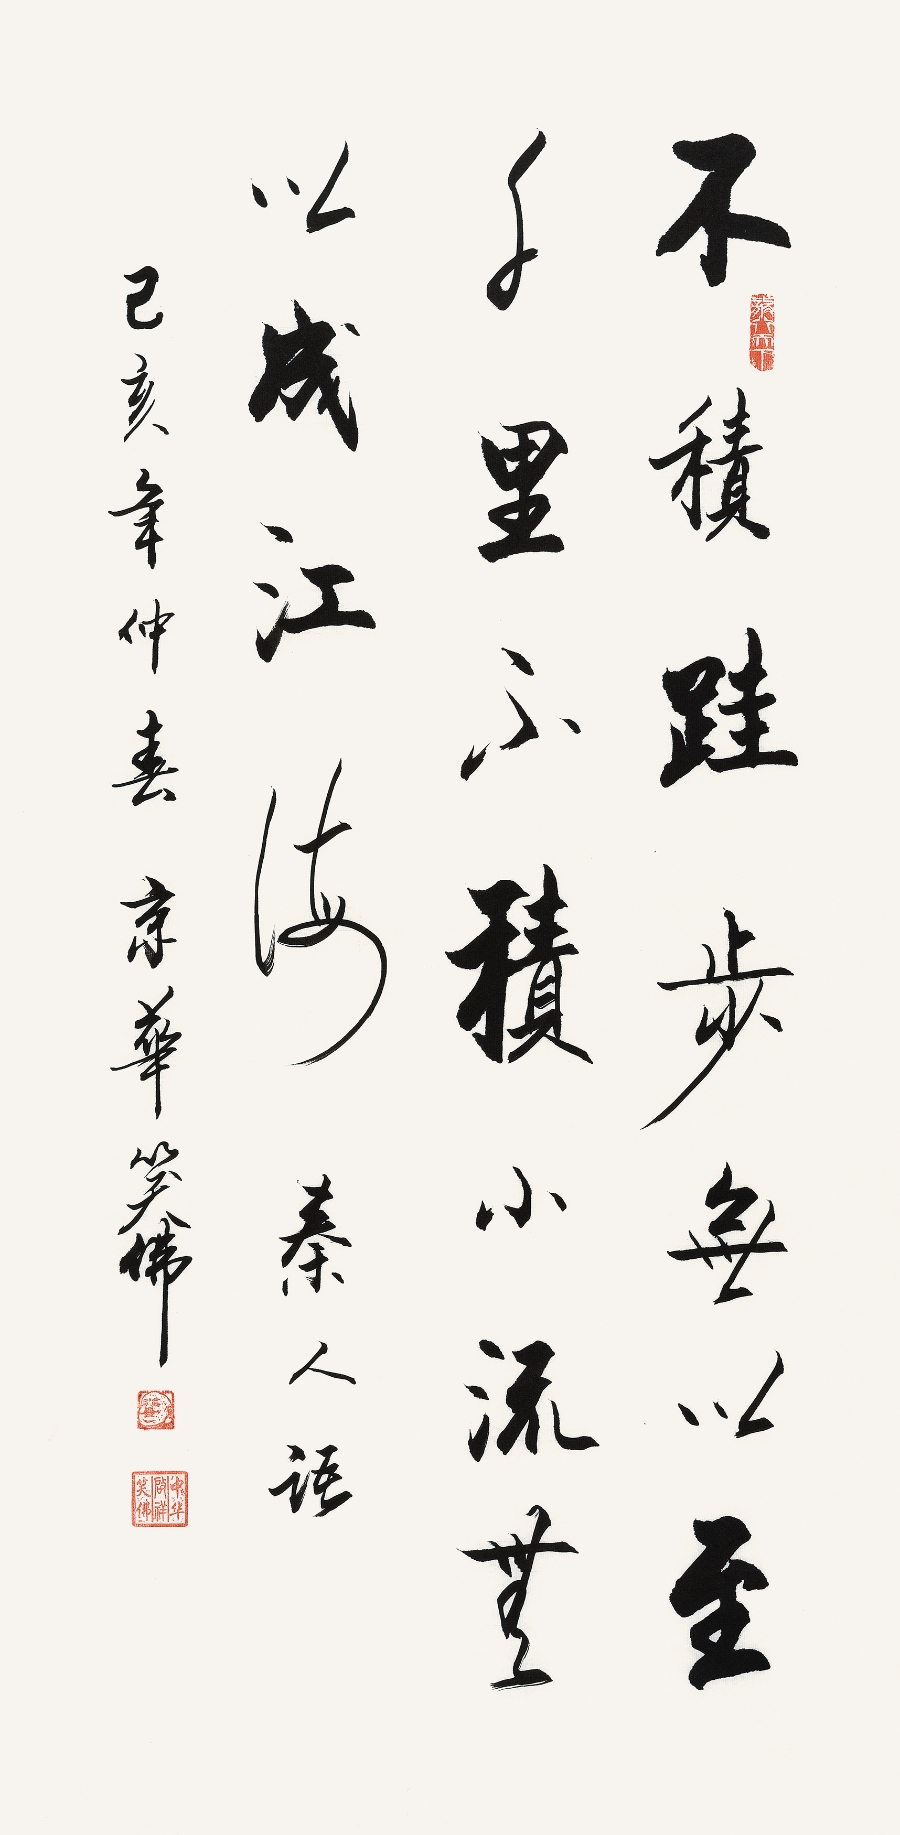 不積跬步無以至
千里不積小流無
以成江海 秦人語
己亥年仲春 京華笑佛
中华
啟祥
笑佛